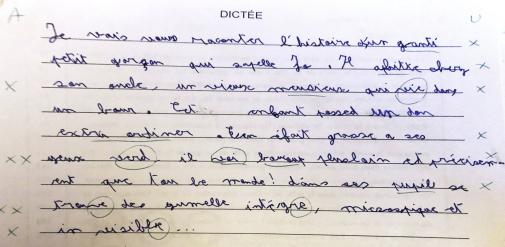 A DICTÉE U
Je vais vous raconter l'histoire d'un granti
petit garçon qui sapelle Jo. Il abitte cherz
son oncle, un vieux meusieux qui vie dans
un bour. Cet enfant possed un don
extra ordiner. en éfait grasse a ses
yeux verd il voi baucoup plusloin et précisemm
ent que tou le monde! dans ses pupil se
trouve des gumelle intégre, microscopique et
in visible...